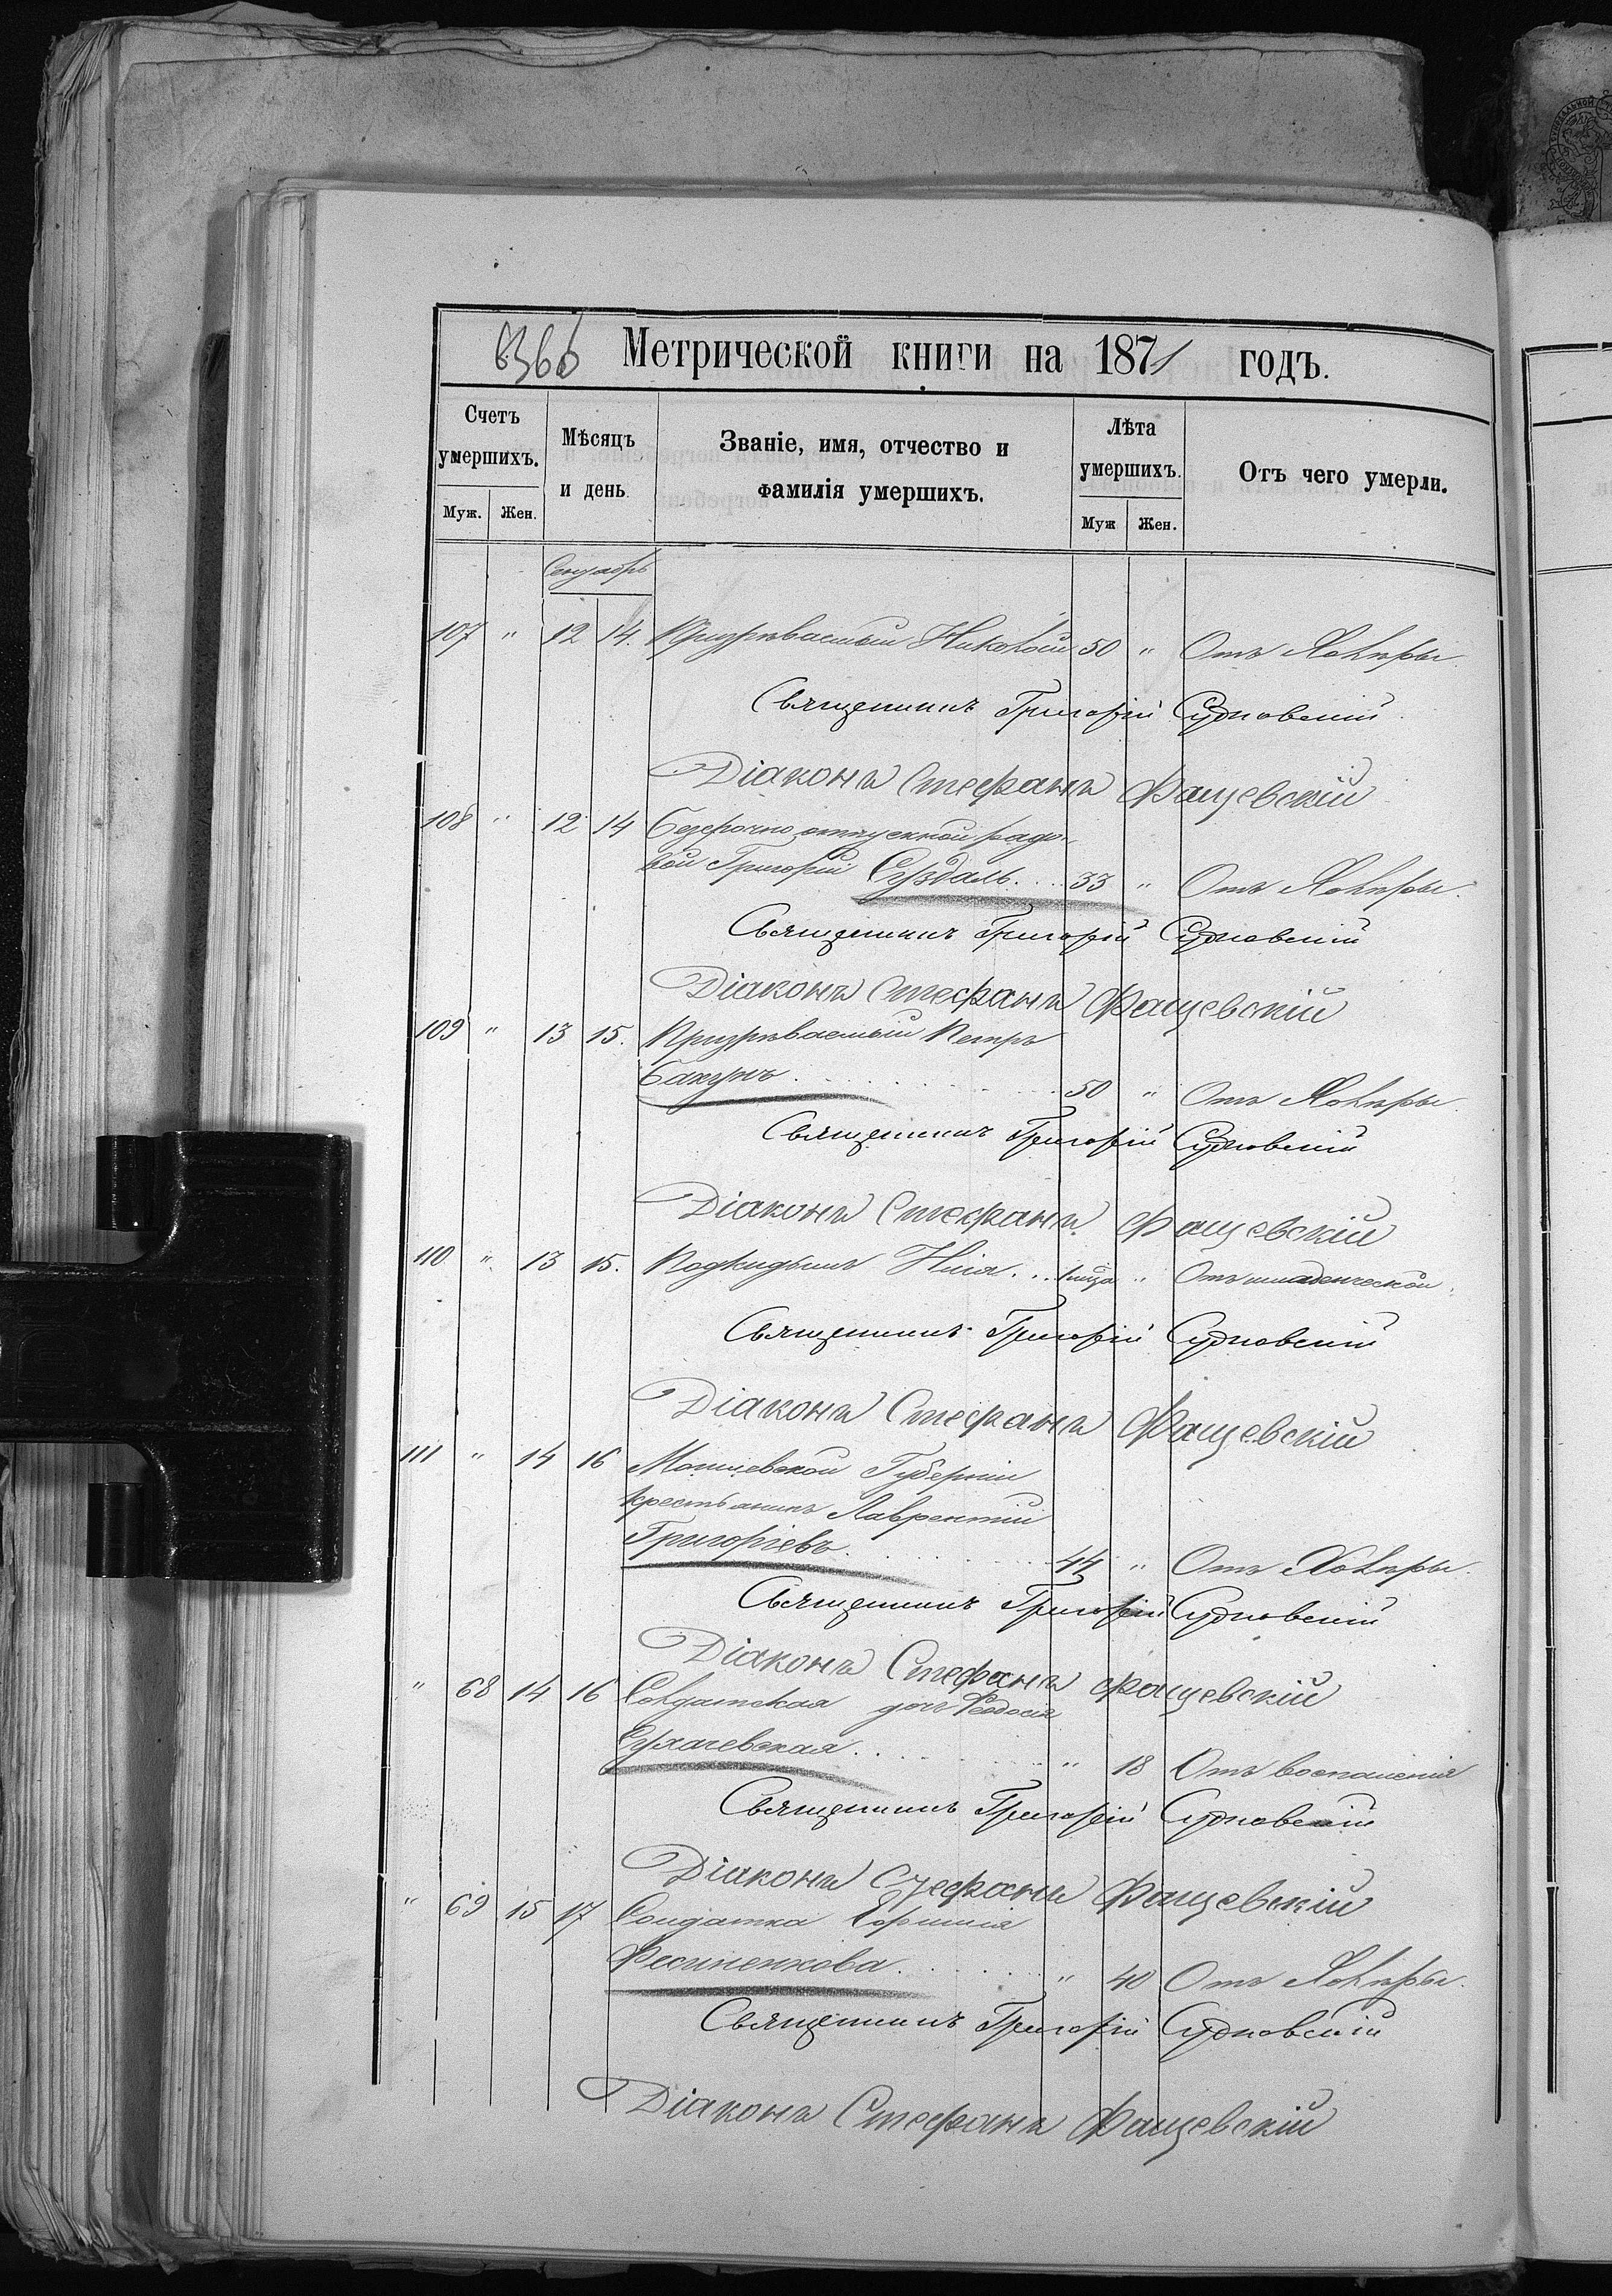 Метрической книги на 1871 годъ.
Счетъ умершихъ.
Мѣсяцъ и день
Званіе, имя, отчество и фамилія умершихъ.
Лѣта умершихъ.
Отъ чего умерли.
Муж. Жен.
Муж Жен.
Сентябрь
107 " 12 14. Призрѣваемый Николай 50 " Отъ Холеры
Священникъ Григорій Судковскій
Діаконъ Стефанъ Фащевскій
108 " 12 14 Безсрочно отпускной рядо-
вой Григорій Суздаль. 33 " Отъ Холеры.
Священникъ Григорій Судковскій
Діаконъ Стефанъ Фащевскій
109 " 13 15. Призрѣваемый Петръ
Бакунъ 50 " Отъ Холеры.
Священникъ Григорій Судковскій
Діаконъ Стефанъ Фащевскій
110 " 13 15. Подкидышъ Илія " Отъ младенческой
Священникъ Григорій Судковскій
Діаконъ Стефанъ Фащевскій
111 " 14 16 Могилевской Губерніи
крестьянинъ Лаврентій
Григоріевъ. 44 " Отъ Холеры.
Священникъ Григорій Судковскій
Діаконъ Стефанъ Фащевскій
" 68 14 16 Солдатская дочь Феодосія
Сухачевская. " 18 Отъ воспаленія
Священникъ Григорій Судковскій
Діаконъ Стефанъ Фащевскій
" 69 15 17 Солдатка Ефимія
Фесиненкова. " 40 Отъ Холеры.
Священникъ Григорій Судковскій
Діаконъ Стефанъ Фащевскій